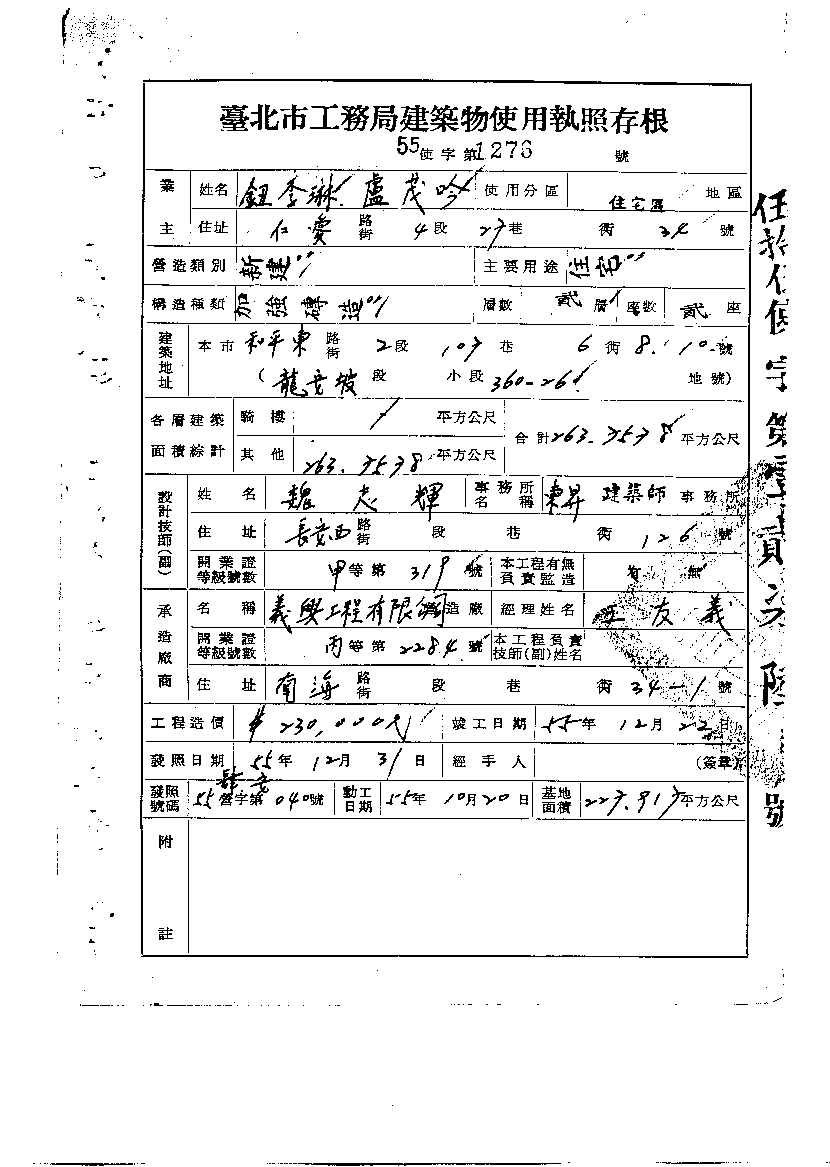 臺北市工務局建築物使用執照存根
55使字第1276號
業主 姓名 鈕李琳 盧茂吟 使用分區 住宅區 地區
住址 仁愛路街 4段 27巷 衖 34號
營造類別 新建 主要用途 住宅
構造種類 加強磚造 層數 貳層 座數 貳座
建築地址 本市 和平東路街 2段 107巷 6衖 8.10.號
(龍安坡段 小段 360-261 地號)
各層建築面積綜計 騎樓 平方公尺 合計 263.7578 平方公尺
其他 263.7578 平方公尺
設計技師(副) 姓名 魏志輝 事務所名稱 東昇建築師事務所
住址 長安西路街 段 巷 衖 126號
開業證等級號數 甲等第319號 本工程有無負責監造 有 無
承造廠商 名稱 義興工程有限 營造廠 經理姓名 王友義
開業證等級號數 丙等第2284號 本工程負責技師(副)姓名
住址 南海路街 段 巷 衖 34-1號
工程造價 $230,000 竣工日期 55年12月22日
發照日期 55年12月31日 經手人 (簽章)
發照號碼 55營字第040號 動工日期 55年10月20日 基地面積 227.917平方公尺
附註
伍拾伍使字第
號